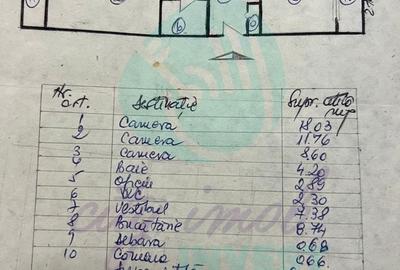 6
Nr. crt. Destinație Supr. utilă mp
1 Camera 18.03
2 Camera 11.76
3 Camera 8.60
4 Baie 4.20
5 Oficiu 2.89
6 WC 2.30
7 Vestibul 7.38
8 Bucătarie 8.74
9 Debara 0.68
10 Camara 0.66